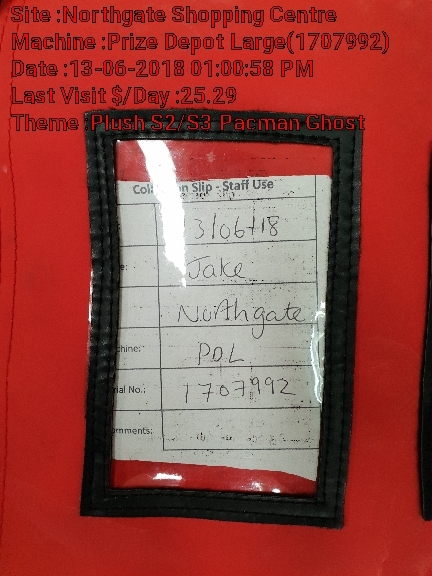 Site :Northgate Shopping Centre
Machine :Prize Depot Large(1707992)
Date :13-06-2018 01:00:58 PM
Last Visit $/Day :25.29
Theme :Plush S2/S3 Pacman Ghost
Slip - Staff Use
3/06/18
Jake
Northgate
hine: PDL
rial No.: 1707992
mments: